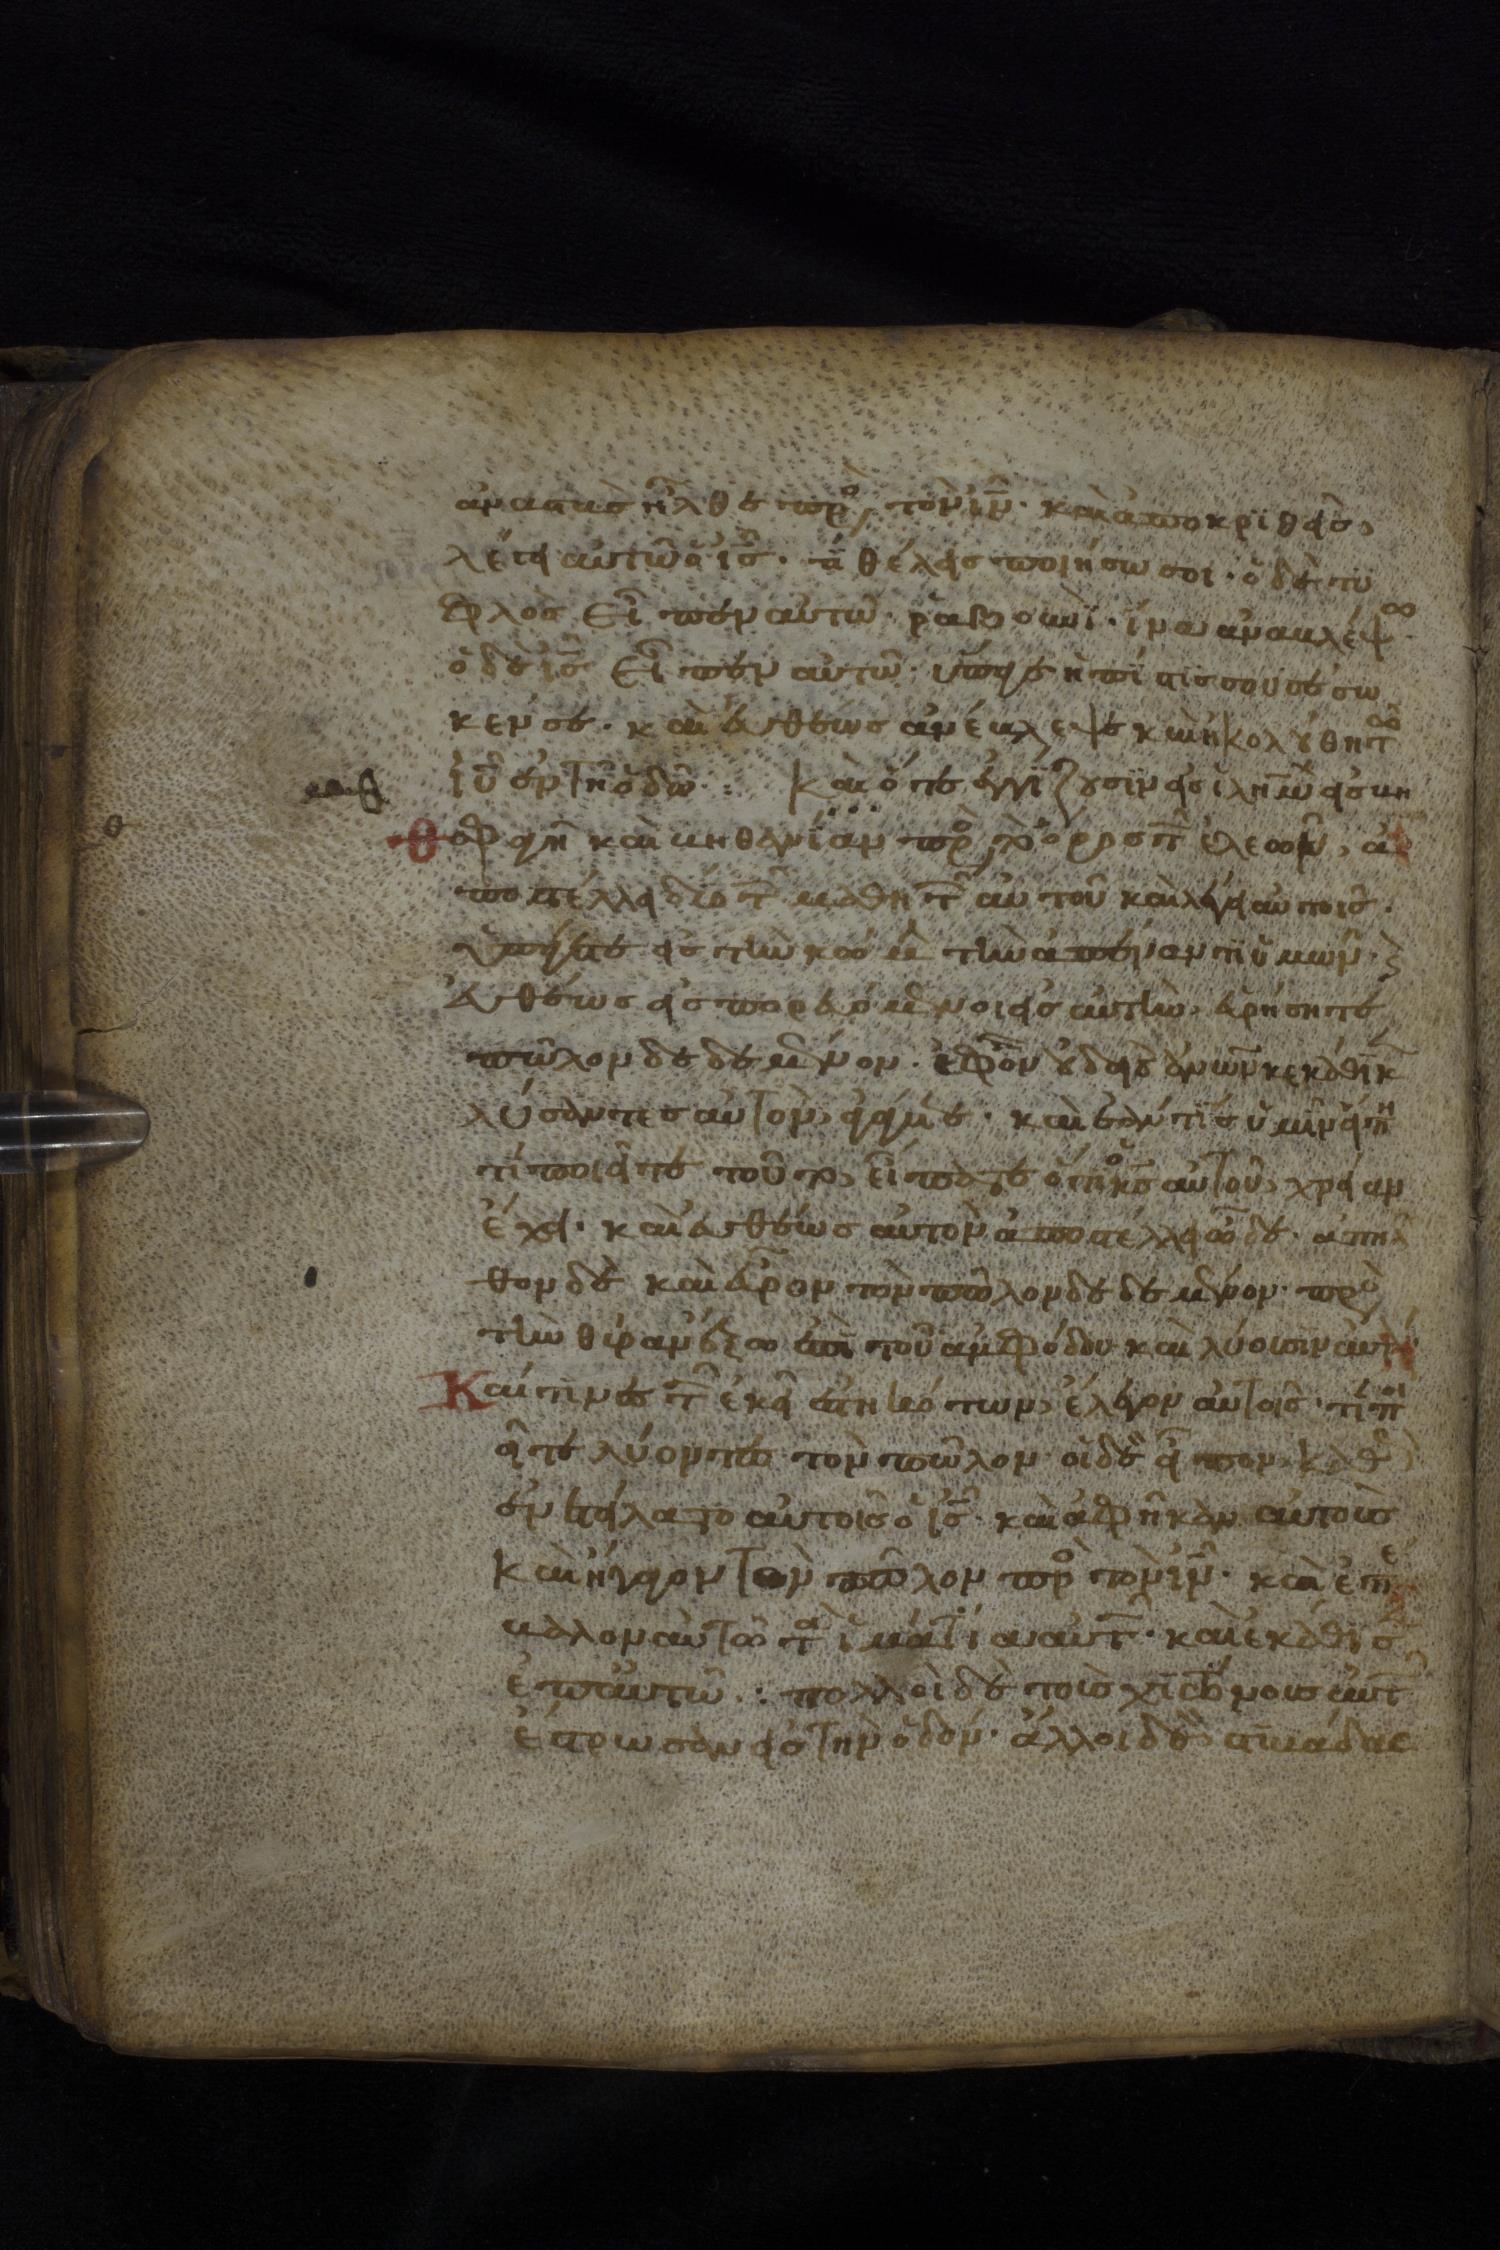 αναστὰς ἦλθε πρὸς τὸν ιν̅· καὶ ἀποκριθεὶς
λέγει αὐτῶ ὁ ις̅· τί θέλεις ποιήσω σοι· ὁ δὲ τυ
φλὸς εἶπεν αὐτῶ· ραββουνὶ· ἵνα ἀναβλέψω·
ὁ δὲ ις̅ εἶπεν αὐτῶ· ὕπαγε ἡ πίστις σου σέσω
κεν σε· καὶ εὐθέως ἀνέβλεψε καὶ ἠκολούθη τῶ
ιυ̅ ἐν τῆ ὁδῶ:· Καὶ ὅτε ἐγγίζουσιν εἰς ιλημ̅ εἰς βη
θσφαγῆ καὶ βηθανίαν πρὸς τὸ ὄρος τ ἐλεων, ἀ
ποστέλλει δύο τ μαθητ αὐτοῦ καὶ λέγει αὐτοῖς·
ὑπάγετε εἰς τὴν κώμ τὴν ἀπέναντι ὑμῶν· κ
εὐθέως εἰσπορευόμενοι εἰς αὐτὴν, εὑρήσητε
πῶλον δεδεμένον· ἐφ' ὃν οὐδεὶς ἀνων̅ κεκάθικ
λύσαντες αὐτὸν ἀγάγετε· καὶ ἐάν τις ὑμῖν εἴπη
τί ποιεῖτε τοῦτο, εἴπατε ὅτι ὁ κς̅ αὐτοῦ χρείαν
ἔχει· καὶ εὐθέως αὐτὸν ἀποστέλλει ὧδε· ἀπηλ
θον δὲ καὶ εὗρον τὸν πῶλον δεδεμένον· πρὸς
τὴν θύραν ἔξω ἐπὶ τοῦ ἀμφόδου καὶ λύουσιν αὐτὸν
Καί τινες τ ἐκεῖ ἑστηκότων, ἔλεγον αὐτοῖς· τί ποι
εῖτε λύοντες τὸν πῶλον· οἱ δὲ εἶπον καθὼς
ἐνετείλατο αὐτοῖς ὁ ις̅· καὶ ἀφῆκαν αὐτοὺς
Καὶ ἤγαγον τὸν πῶλον πρὸς τὸν ιν̅· καὶ ἐπέ
βαλον αὐτῶ τὰ ἱμάτια αὐτ· καὶ ἐκάθισ
ἐπ' αὐτῶ:· πολλοὶ δὲ τοὺς χιτῶνας αὐτ
ἔστρωσαν εἰς τὴν ὁδόν· ἄλλοι δὲ στιβάδας
θ